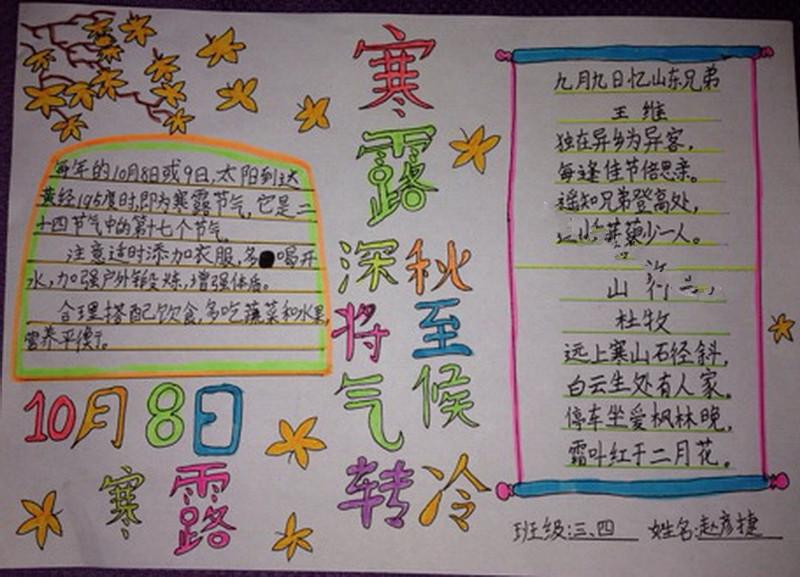 寒
露
深秋
将至
气候
转冷
每年的10月8日或9日,太阳到达
黄经195度时,即为寒露节气,它是二
十四节气中的第十七个节气。
注意适时添加衣服,多喝开
水,加强户外锻炼,增强体质。
合理搭配饮食,多吃蔬菜和水果,
营养平衡。
10月8日
寒露
九月九日忆山东兄弟
王维
独在异乡为异客,
每逢佳节倍思亲。
遥知兄弟登高处,
少一人。
山
杜牧
远上寒山石径斜,
白云生处有人家。
停车坐爱枫林晚,
霜叶红于二月花。
班级:三、四 姓名:赵彦捷